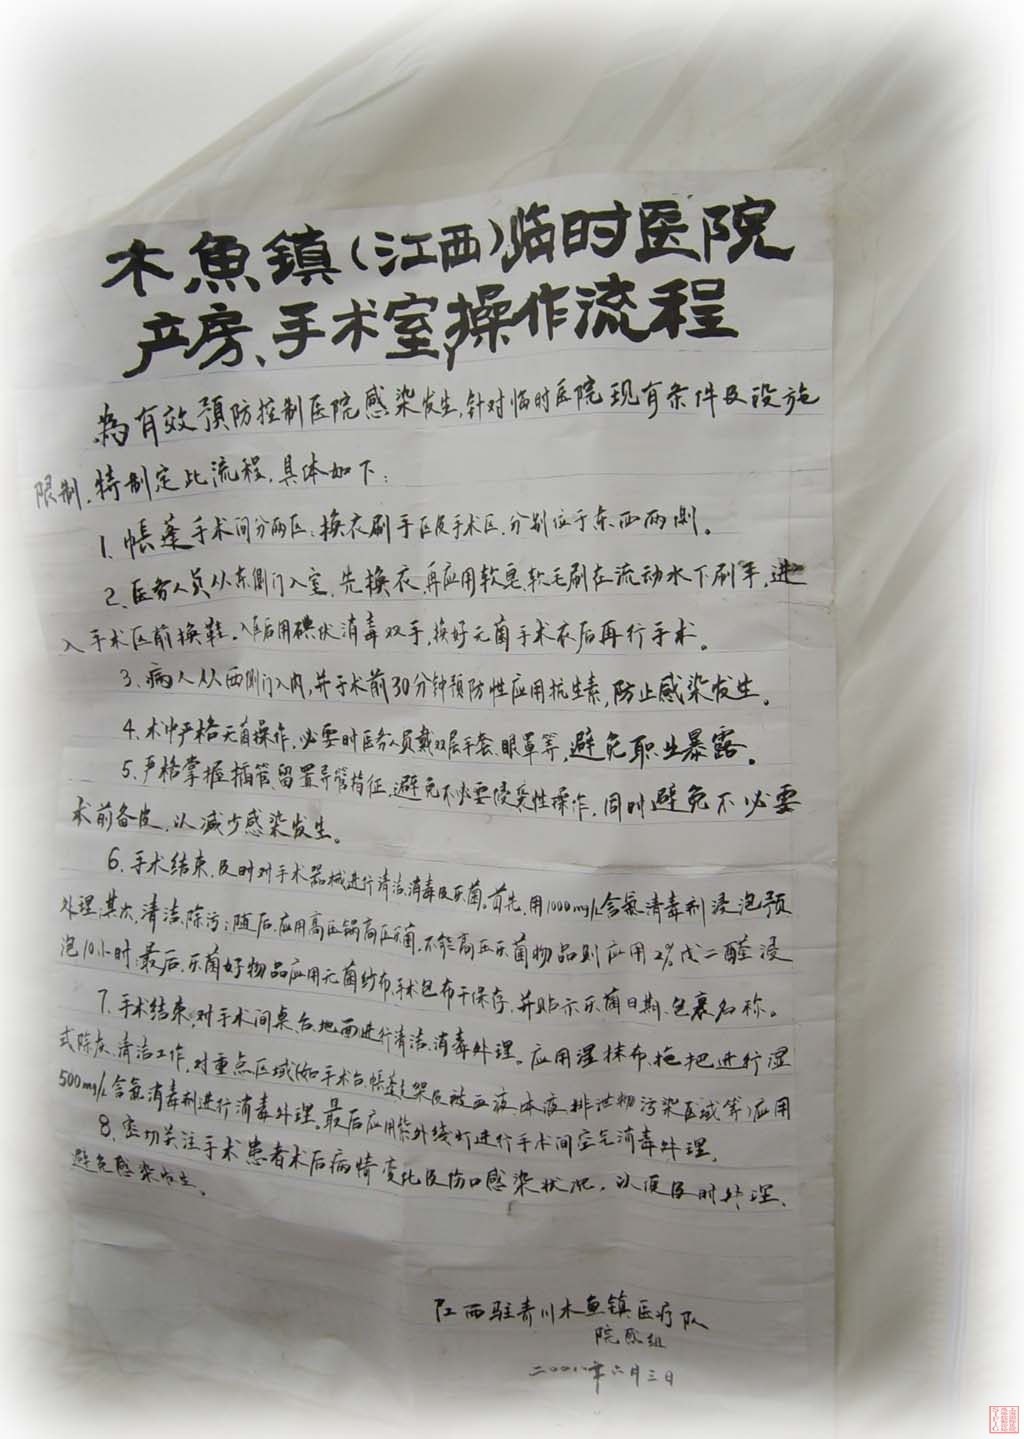 木魚鎮(江西)临时医院
产房、手术室操作流程
為有效预防控制医院感染发生,针对临时医院现有条件及设施
限制,特制定此流程,具体如下:
1、帐篷手术间分两区:换衣刷手区及手术区,分别位于东西两侧。
2、医务人员从东侧门入室,先换衣,再应用软皂、软毛刷在流动水下刷手,进
入手术区前换鞋。入区后用碘伏消毒双手,换好无菌手术衣后再行手术。
3、病人从西侧门入内,并于术前30分钟预防性应用抗生素,防止感染发生。
4、术中严格无菌操作,必要时医务人员戴双层手套、眼罩等,避免职业暴露。
5、严格掌握插管、留置导管指征,避免不必要侵袭性操作,同时避免不必要
术前备皮,以减少感染发生。
6、手术结束,及时对手术器械进行清洁、消毒及灭菌。首先,用1000mg/L含氯消毒剂浸泡预
处理;其次,清洁、除污;随后,应用高压锅高压灭菌,不能高压灭菌物品则应用2%戊二醛浸
泡10小时;最后,灭菌好物品应用无菌纱布、手术包布干保存,并贴示灭菌日期、包裹名称。
7、手术结束,对手术间桌、台、地面进行清洁、消毒处理。应用湿抹布、拖把进行湿
式除灰、清洁工作,对重点区域(如手术台、帐篷支架及被血液、体液、排泄物污染区域等)应用
500mg/L含氯消毒剂进行消毒处理。最后应用紫外线灯进行手术间空气消毒处理。
8、密切关注手术患者术后病情变化及伤口感染状况,以便及时处理、
避免感染发生。
江西驻青川木鱼镇医疗队
院感组
二〇〇八年六月三日